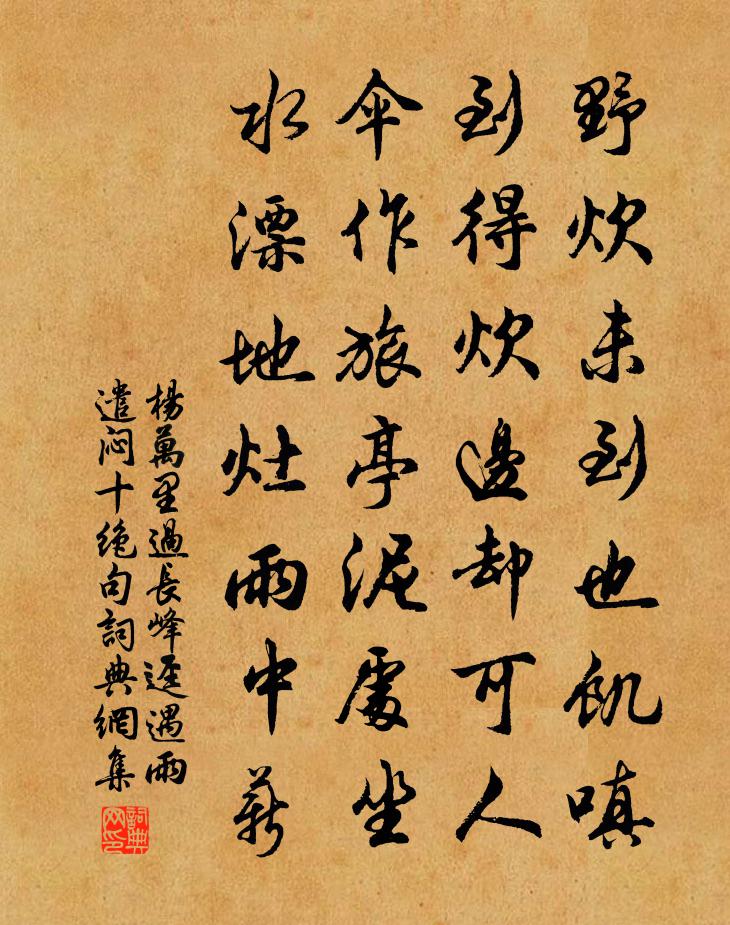 野炊未到也飢嗔
到得炊邊却可人
傘作旅亭泥處坐
水漂地灶雨中薪
楊萬里過長峰逕遇雨
遣闷十絶句詞典網集
詞典网印